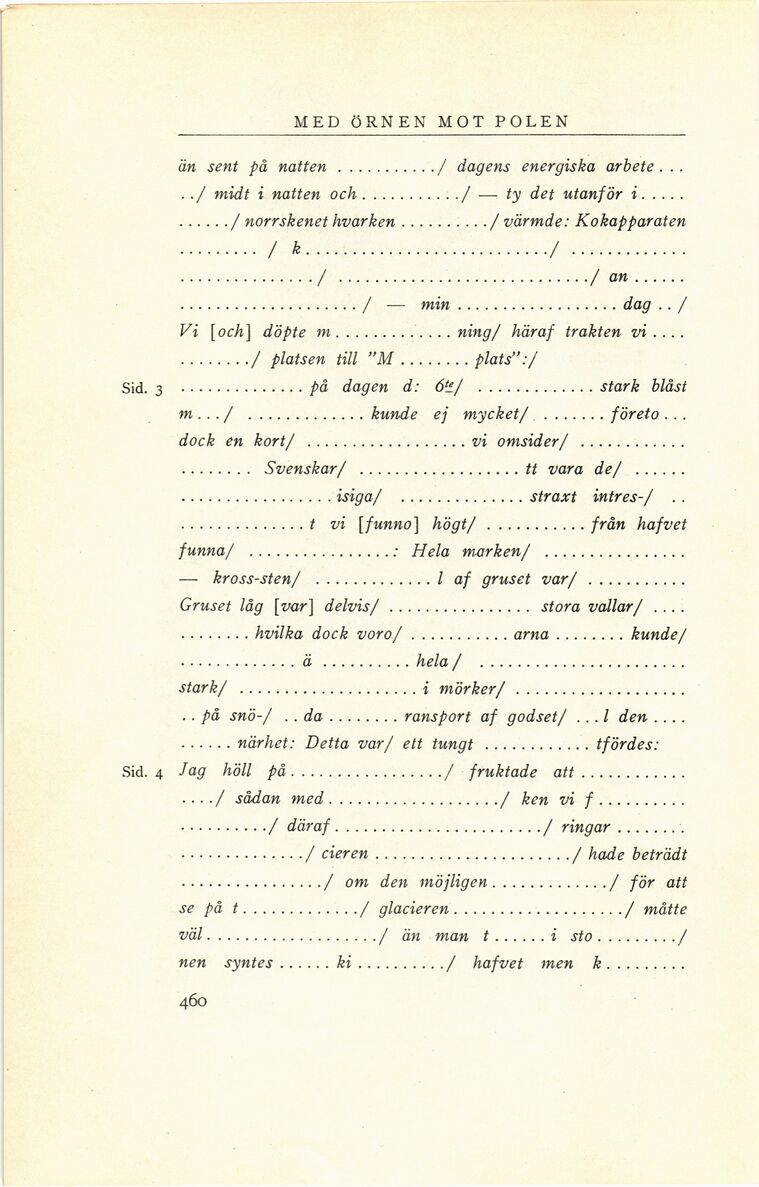 MED ÖRNEN MOT POLEN
än sent på natten . . . . . . . . . . . / dagens energiska arbete . . .
. . / midt i natten och . . . . . . . . . . . / — ty det utanför i . . . . .
. . . . . . / norrskenet hvarken . . . . . . . . . . / värmde: Kokapparaten
. . . . . . . . . / k . . . . . . . . . . . . . . . . . . . . . . . . . . . / . . . . . . . . . . . . .
. . . . . . . . . . . . . . . / . . . . . . . . . . . . . . . . . . . . . . . . . . . . / an . . . . . .
. . . . . . . . . . . . . . . . . . . . / — min . . . . . . . . . . . . . . . . . . dag . . /
Vi [och] döpte m . . . . . . . . . . . . . ning/ häraf trakten vi . . . .
. . . . . . . . / platsen till ”M . . . . . . . . plats”:/
Sid. 3 . . . . . . . . . . . . . . på dagen d: 6te/ . . . . . . . . . . . . . stark blåst
m . . . / . . . . . . . . . . . . . kunde ej mycket/ . . . . . . . företo . . .
dock en kort/ . . . . . . . . . . . . . . . . . . vi omsider/ . . . . . . . . . . . .
. . . . . . . . Svenskar/ . . . . . . . . . . . . . . . . . . tt vara de/ . . . . . .
. . . . . . . . . . . . . . . . . isiga/ . . . . . . . . . . . . . . straxt intres-/ . .
. . . . . . . . . . . . . . t vi [funno] högt/ . . . . . . . . . . . från hafvet
funna/ . . . . . . . . . . . . . . . . : Hela marken/ . . . . . . . . . . . . . . . .
— kross-sten/ . . . . . . . . . . . . . l af gruset var/ . . . . . . . . . . .
Gruset låg [var] delvis/ . . . . . . . . . . . . . . . . stora vallar/ . . . .
. . . . . . . . hvilka dock voro/ . . . . . . . . . . . arna . . . . . . . . kunde/
. . . . . . . . . . . . . ä . . . . . . . . . . hela / . . . . . . . . . . . . . . . . . . . . . . .
stark/ . . . . . . . . . . . . . . . . . . . . i mörker/ . . . . . . . . . . . . . . . . . . .
. . på snö-/ . . da . . . . . . . . ransport af godset/ . . . l den . . . .
. . . . . . närhet: Detta var/ ett tungt . . . . . . . . . . . . tfördes:
Sid. 4 Jag höll på . . . . . . . . . . . . . . . . . / fruktade att . . . . . . . . . . . .
. . . . / sådan med . . . . . . . . . . . . . . . . . . . / ken vi f . . . . . . . . . .
. . . . . . . . . . / däraf . . . . . . . . . . . . . . . . . . . . . . . / ringar . . . . . . . .
. . . . . . . . . . . . . . / cieren . . . . . . . . . . . . . . . . . . . . . . / hade beträdt
. . . . . . . . . . . . . . . . / om den möjligen . . . . . . . . . . . . . / för att
se på t . . . . . . . . . . . . . / glacieren . . . . . . . . . . . . . . . . . . . / måtte
väl . . . . . . . . . . . . . . . . . . . / än man t . . . . . . i sto . . . . . . . . . /
nen syntes . . . . . . ki . . . . . . . . . . / hafvet men k . . . . . . . . .
460